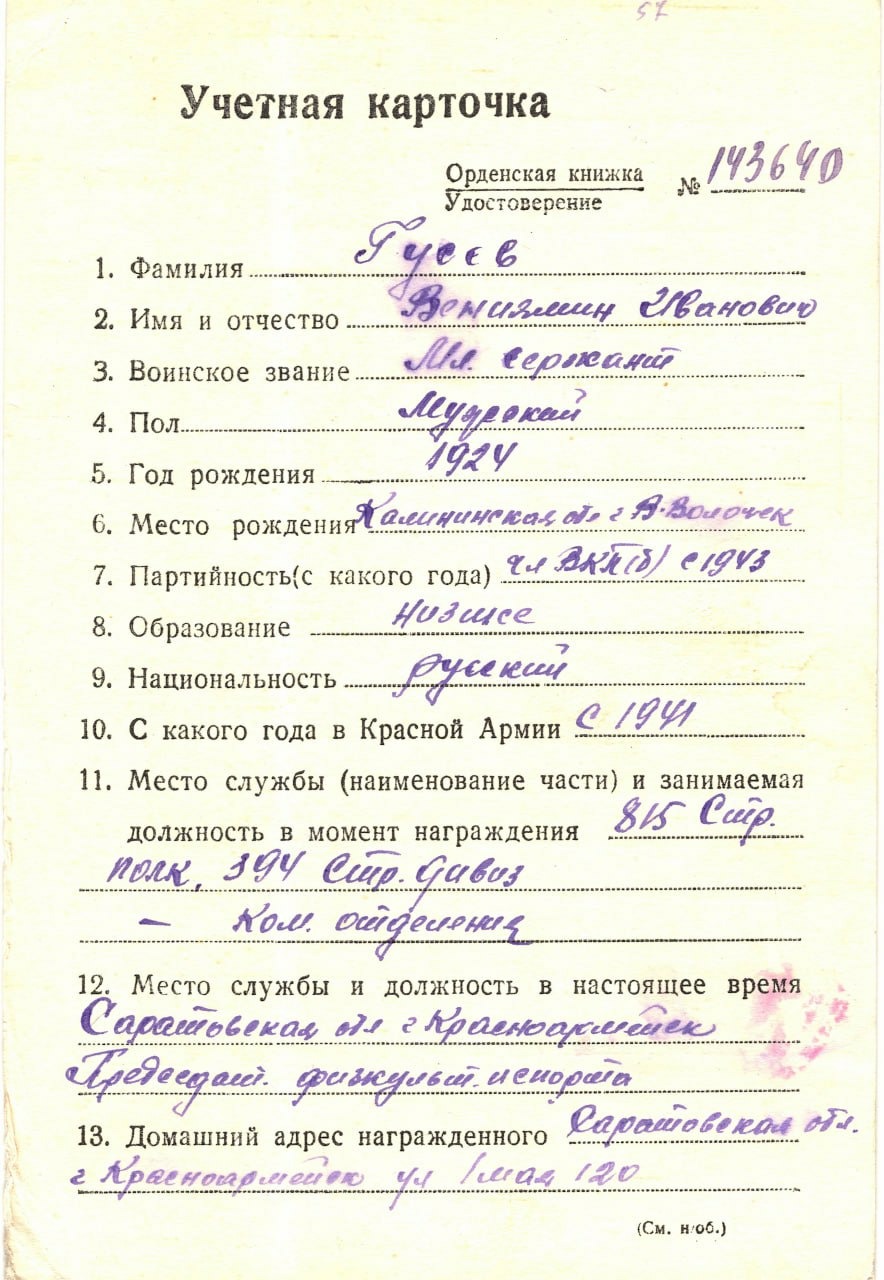 57
Учетная карточка
Орденская книжка № 143640
Удостоверение
1. Фамилия Гусев
2. Имя и отчество Вениямин Иванович
3. Воинское звание Мл. Сержант
4. Пол Мужской
5. Год рождения 1924
6. Место рождения Калининская обл г В-Волочек
7. Партийность(с какого года) чл ВКП(б) с 1943
8. Образование низшее
9. Национальность русский
10. С какого года в Красной Армии С 1941
11. Место службы (наименование части) и занимаемая
должность в момент награждения 815 Стр.
полк, 394 Стр. дивиз
— Ком. отделения
12. Место службы и должность в настоящее время
Саратовская обл г Красноармейск
Председат. физкульт. и спорта
13. Домашний адрес награжденного Саратовская обл.
г Красноармейск ул 1 мая 120
(См. н/об.)